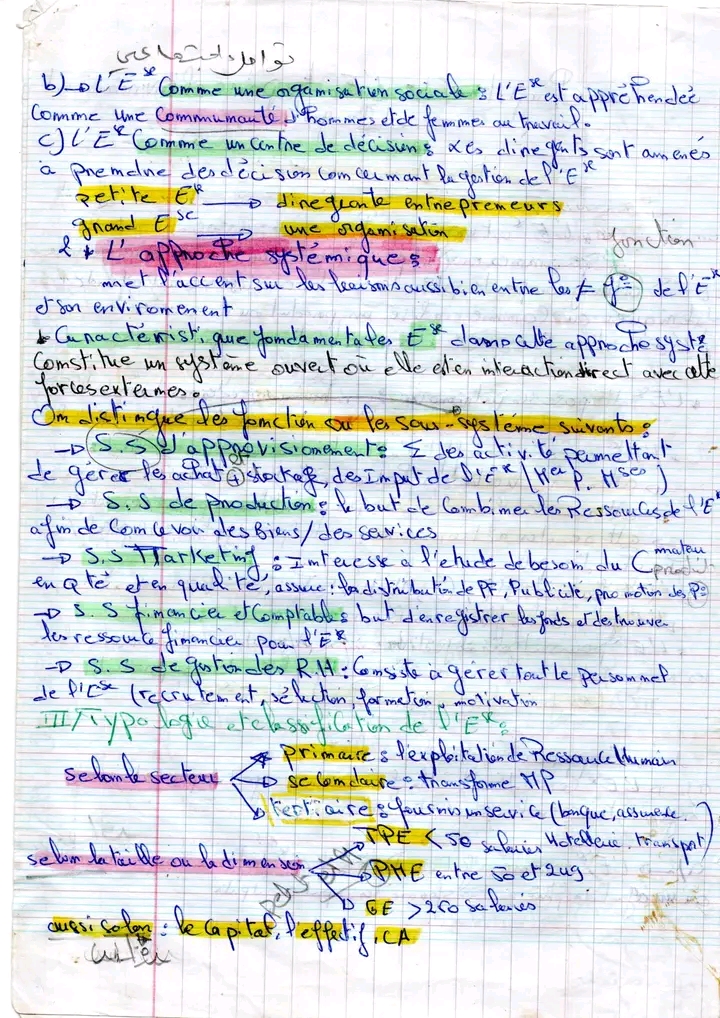 تواصل اجتماعي
b) → L'E^se Comme une organisation sociale : L'E^se est appréhendée
Comme une Communauté d'hommes et de femmes au travail.
c) L'E^se Comme un centre de décision : Les dirigeants sont amenés
à prendre des décision concernant la gestion de l'E^se
petite E^se → dirigeante entrepreneurs
grand E^se → une organisation
2 * L'approche systémique :
met l'accent sur les liaisons aussi bien entre les ≠ f° de l'E^se
fonction
et son enviroment
Caractérisitique fondamentales E^se dans cette approche syst
Constitue un système ouvert où elle est en interaction direct avec cette
forces externes.
On distingue les fonction ou les sous-système suivants :
→ S.S d'approvisionement : Σ des activité permettant
de gérer les achat et + stockage, des Input de l'E^se (M^er P. M^ses)
→ S.S de production : le but de Combiner les Ressources de l'E^se
afin de Concevoir des Biens / des services
→ S.S Marketing : Interesse à l'etude de besoin du C^mmateur
en Qté et en qualité, assure : la distribution de PF, Publicité, promotion des P^s
→ S.S financier et Comptables but d'enregistrer les fonds et de trouver
les ressource financier pour l'E^se
→ S.S de gestion des R.H : Consiste à gérer tout le personnel
de l'E^se (recrutement, sélection, formation, motivation
III/ Typologie et classification de l'E^se :
selon le secteur
primaire : l'exploitation de Ressource Humain
secondaire : transforme MP
tertiaire : fournis un service (banque, assurence.
Hotellerie. transport)
selon la taille ou la dimension
TPE < 50 salariés
PME entre 50 et 249
GE > 250 salariés
aussi selon : le Capital, l'effectif, CA